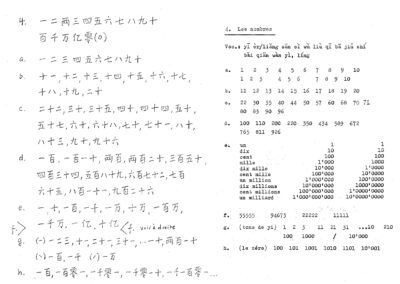 4. 一二两三四五六七八九十
百千万亿零(0)
a. 一二三四五六七八九十
b. 十一, 十二, 十三, 十四, 十五, 十六, 十七,
十八, 十九, 二十
c. 二十二, 三十, 三十五, 四十, 四十四, 五十,
五十七, 六十, 六十八, 七十, 七十一, 八十,
八十三, 九十, 九十六
d. 一百, 一百一十, 两百, 两百二十, 三百五十,
四百三十四, 五百八十九, 六百七十二, 七百
六十五, 八百一十一, 九百二十六
e. 一, 十, 一百, 一千, 一万, 十万, 一百万,
一千万, 一亿, 十亿
f. voir à droite
g. (一)一二三, 十一, 二十一, 三十一, ...一十, 两百一十
(一)一百, 一千 (一)一万
h. 一百, 一百零一, 一千零一, 一千零一十, 一千一百零一...
4. Les nombres
Voc.: yī èr/liǎng sān sì wǔ liù qī bā jiǔ shí
bǎi qiān wàn yì, líng
a. 1 2 3 4 5 6 7 8 9 10
1 2 3 4 5 6 7 8 9 10
b. 11 12 13 14 15 16 17 18 19 20
c. 22 30 35 40 44 50 57 60 68 70 71
80 83 90 96
d. 100 110 200 220 350 434 589 672
765 811 926
e. un 1
dix 10
cent 100
mille 1'000
dix mille 10'000
cent mille 100'000
un million 1'000'000
dix millions 10'000'000
cent millions 100'000'000
un milliard 1'000'000'000
f. 55555 94673 22222 11111
g. (tons de yī) 1 2 3 11 21 31 ...10 210
100 1000 / 10'000
h. (le zéro) 100 101 1001 1010 1101 10'001